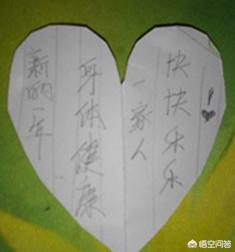 新的一年
身体健康
一家人
快快乐乐！
悟空问答